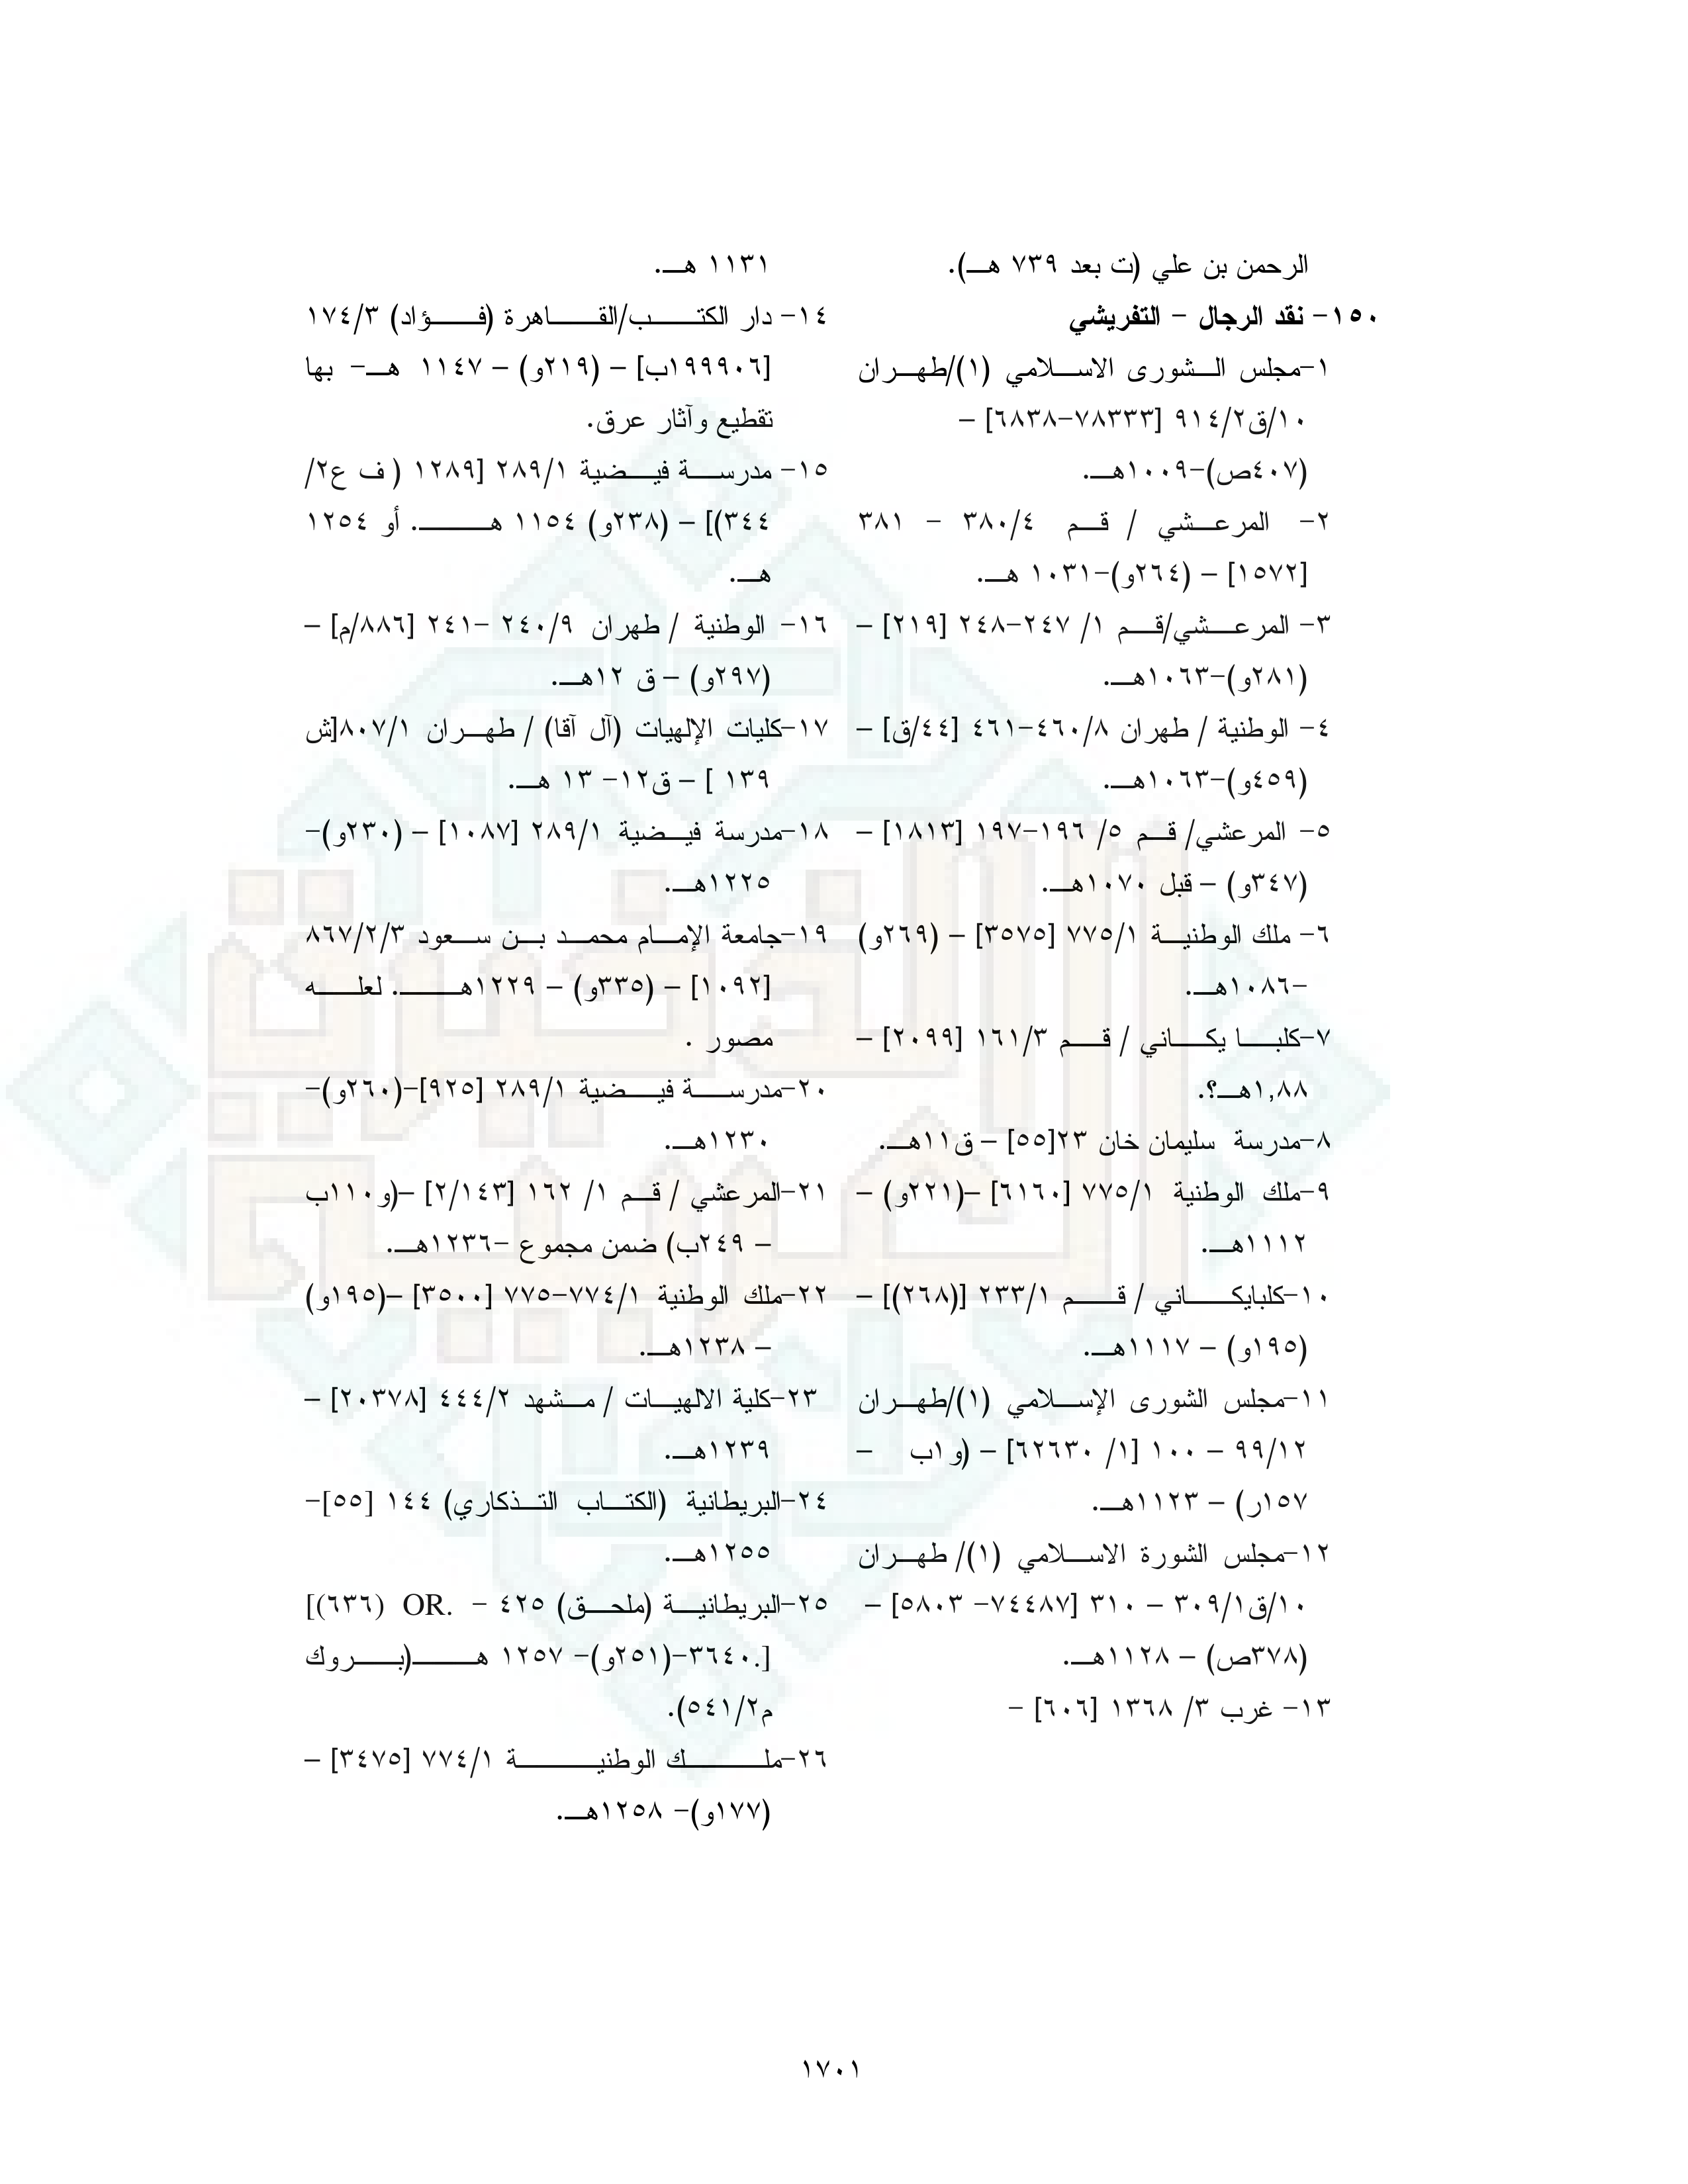 الرحمن بن علي (ت بعد ٧٣٩ هـ).
١٥٠- نقد الرجال - التفريشي
١-مجلس الشورى الاسلامي (١)/طهران
١٠/ق٩١٤/٢ [٧٨٣٣٣-٦٨٣٨] –
(٤٠٧ص)-١٠٠٩هـ.
٢- المرعشي / قم ٣٨٠/٤ - ٣٨١
[١٥٧٢] – (٢٦٤و)-١٠٣١ هـ.
٣- المرعشي/قم ١/ ٢٤٧-٢٤٨ [٢١٩] –
(٢٨١و)-١٠٦٣هـ.
٤- الوطنية / طهران ٤٦٠/٨-٤٦١ [٤٤/ق] –
(٤٥٩و)-١٠٦٣هـ.
٥- المرعشي/ قم ٥/ ١٩٦-١٩٧ [١٨١٣] –
(٣٤٧و) – قبل ١٠٧٠هـ.
٦- ملك الوطنية ٧٧٥/١ [٣٥٧٥] – (٢٦٩و)
-١٠٨٦هـ.
٧-كلبا يكاني / قم ١٦١/٣ [٢٠٩٩] –
١,٨٨هـ؟.
٨-مدرسة سليمان خان ٢٣[٥٥] – ق١١هـ.
٩-ملك الوطنية ٧٧٥/١ [٦١٦٠] –(٢٢١و) –
١١١٢هـ.
١٠-كلبايكاني / قم ٢٣٣/١ [(٢٦٨)] –
(١٩٥و) – ١١١٧هـ.
١١-مجلس الشورى الإسلامي (١)/طهران
٩٩/١٢ – ١٠٠ [١/ ٦٢٦٣٠] – (و١ب –
١٥٧ر) – ١١٢٣هـ.
١٢-مجلس الشورة الاسلامي (١)/ طهران
١٠/ق٣٠٩/١ – ٣١٠ [٧٤٤٨٧- ٥٨٠٣] –
(٣٧٨ص) – ١١٢٨هـ.
١٣- غرب ٣/ ١٣٦٨ [٦٠٦] -
١١٣١ هـ.
١٤- دار الكتب/القاهرة (فؤاد) ١٧٤/٣
[١٩٩٩٠٦ب] – (٢١٩و) – ١١٤٧ هـ- بها
تقطيع وآثار عرق.
١٥- مدرسة فيضية ٢٨٩/١ [١٢٨٩ ( ف ع٢/
٣٤٤)] – (٢٣٨و) ١١٥٤ هـ. أو ١٢٥٤
هـ.
١٦- الوطنية / طهران ٢٤٠/٩ -٢٤١ [٨٨٦/م] –
(٢٩٧و) – ق ١٢هـ.
١٧-كليات الإلهيات (آل آقا) / طهران ٨٠٧/١[ش
١٣٩ ] – ق١٢- ١٣ هـ.
١٨-مدرسة فيضية ٢٨٩/١ [١٠٨٧] – (٢٣٠و)-
١٢٢٥هـ.
١٩-جامعة الإمام محمد بن سعود ٨٦٧/٢/٣
[١٠٩٢] – (٣٣٥و) – ١٢٢٩هـ. لعله
مصور .
٢٠-مدرسة فيضية ٢٨٩/١ [٩٢٥]-(٢٦٠و)-
١٢٣٠هـ.
٢١-المرعشي / قم ١/ ١٦٢ [٢/١٤٣] –(و١١٠ب
– ٢٤٩ب) ضمن مجموع -١٢٣٦هـ.
٢٢-ملك الوطنية ٧٧٤/١-٧٧٥ [٣٥٠٠] –(١٩٥و)
– ١٢٣٨هـ.
٢٣-كلية الالهيات / مشهد ٤٤٤/٢ [٢٠٣٧٨] –
١٢٣٩هـ.
٢٤-البريطانية (الكتاب التذكاري) ١٤٤ [٥٥]-
١٢٥٥هـ.
٢٥-البريطانية (ملحق) ٤٢٥ - OR. (٦٣٦)]
[.٣٦٤٠-(٢٥١و)- ١٢٥٧ هـ(بروك
م٥٤١/٢).
٢٦-ملك الوطنية ٧٧٤/١ [٣٤٧٥] –
(١٧٧و)- ١٢٥٨هـ.
١٧٠١